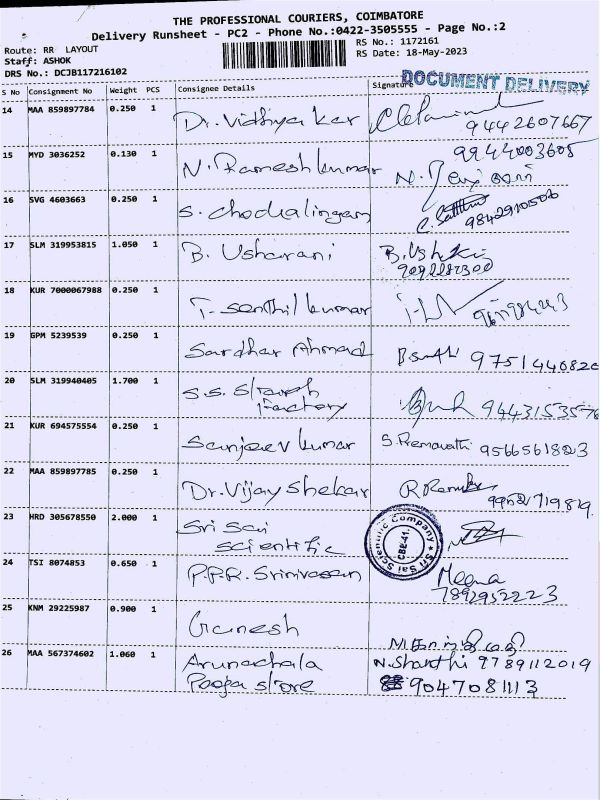 THE PROFESSIONAL COURIERS, COIMBATORE
Delivery Runsheet - PC2 - Phone No.:0422-3505555 - Page No.:2
Route: RR LAYOUT
RS No.: 1172161
Staff: ASHOK
RS Date: 18-May-2023
DRS No.: DCJB117216102
DOCUMENT DELIVERY
S No Consignment No Weight PCS Consignee Details Signature
14 MAA 859897784 0.250 1 Dr. Vidhya kar
9442607667
15 MYD 3036252 0.130 1 N. Rameshkumar
9944003605
16 SVG 4603663 0.250 1 S. chockalingam
17 SLM 319953815 1.050 1 B. Usharani
18 KUR 7000067988 0.250 1 T. senthil kumar
19 GPM 5239539 0.250 1 Sardhar Ahmad
20 SLM 319940405 1.700 1 S.S. Starch
Factory 9443153576
21 KUR 694575554 0.250 1 Sanjeev kumar S. Premavathi
22 MAA 859897785 0.250 1 Dr. Vijay Shekar
23 HRD 305678550 2.000 1 Sri Sai
Scientific
Sri Sai Scientific Company
CBE-41.
24 TSI 8074853 0.650 1 P.P.R. Srinivasan Meena
7892952223
25 KNM 29225987 0.900 1 Ganesh
26 MAA 567374602 1.060 1 Arunachala N. Shanthi 9789112019
Pooja store 9047081113